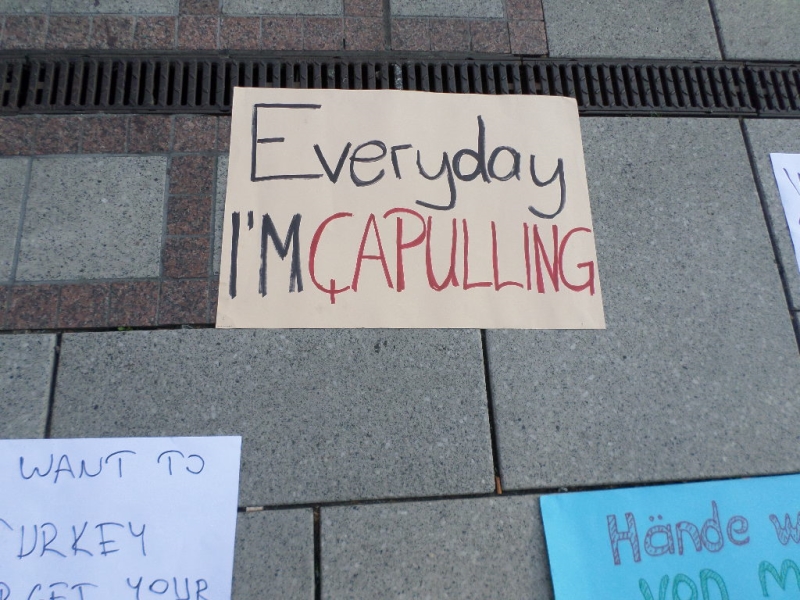 Everyday
I'M ÇAPULLING
WANT TO
TURKEY
YOUR
Hände
von